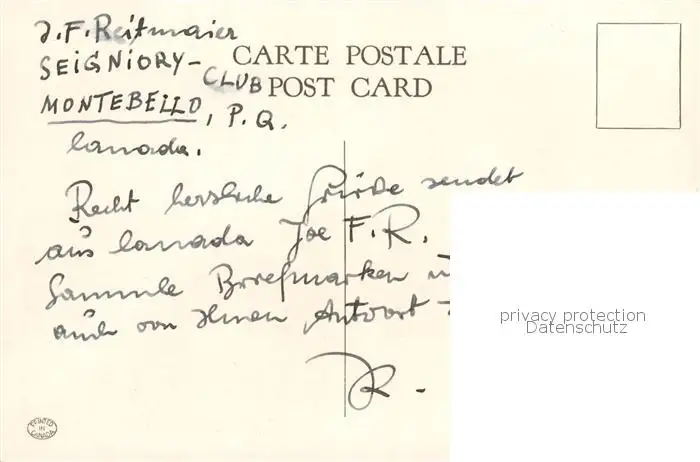 J.F. Reitmaier
SEIGNIORY-
CLUB
MONTEBELLO, P.Q.
Canada.
CARTE POSTALE
POST CARD
Recht herzliche Grüße sendet
aus Canada Joe F.R.
Sammle Briefmarken u
auch von Ihnen Antwort
R.
privacy protection
Datenschutz
PRINTED
IN
CANADA